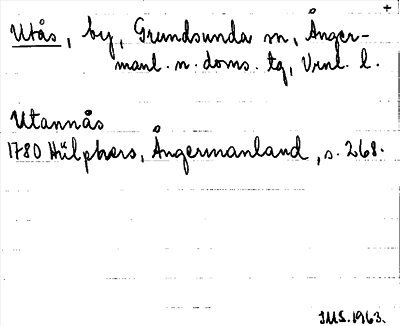 +
Utås, by, Grundsunda sn, Ånger-
manl. n. doms. tg, Vrnl. l.
Utannås
1780 Hülphers, Ångermanland, s. 268.
IMS. 1963.